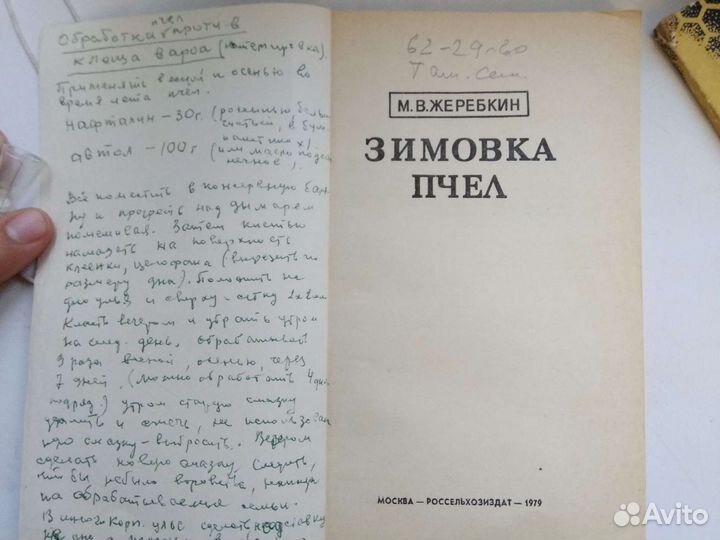 Обработка пчел против
клеща вароа
Применять весной и осенью во
время лета пчел.
Нафталин – 30 г.
автол – 100 г (или масло подсол
нечное).
Всё поместить в консервную бан
ку и прогреть над дымарем
помешивая. Затем кистью
намазать на поверхность
клеенки, целофана (вырезать по
размеру дна). Положить на
дно улья и сверху – сетку
Класть вечером и убрать утром
на след. день, обрабатывать
3 раза весной, осенью, через
7 дней, (можно обработать 4 дня
подряд) утром старую смазку
удалить и
смазку – выбросить. Вечером
сделать новую смазку, следить,
что бы не было воровства,
на обрабатываемые семьи.
В многокорп. улье сделать подставку
62-29
М. В. ЖЕРЕБКИН
ЗИМОВКА
ПЧЕЛ
МОСКВА — РОССЕЛЬХОЗИЗДАТ — 1979
Avito